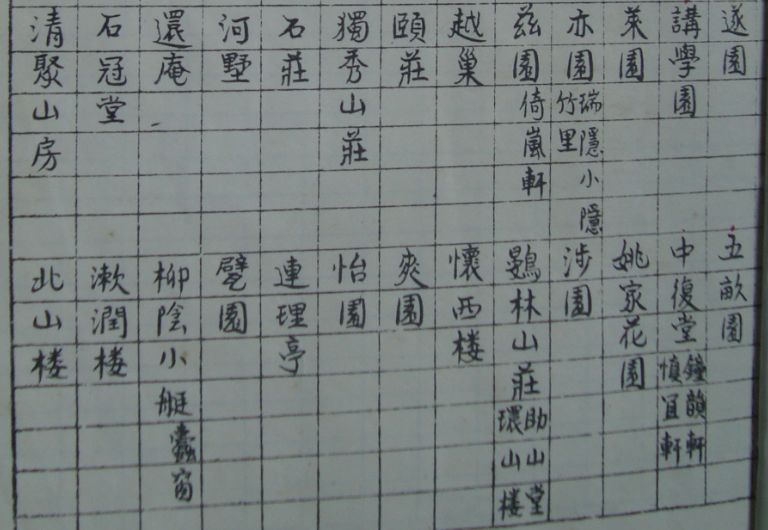 遂園
講學園
萊園
亦園 瑞隱小隱 竹里
茲園 倚嵐軒
越巢
頤莊
獨秀山莊
石莊
河墅
還庵
石冠堂
清聚山房
五畝園
中復堂 鐘韻軒 慎宜軒
姚家花園
涉園
林山莊 助山堂 環山楼
懷西楼
爽園
怡園
連理亭
園
柳陰小艇 蠹窗
漱潤楼
北山楼